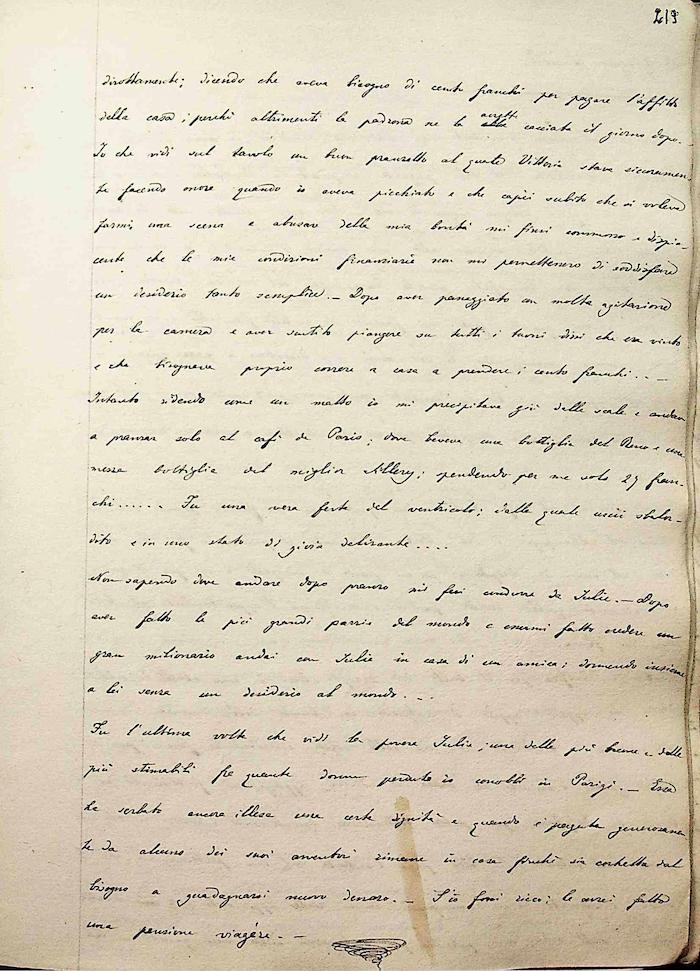 219
dirottamente; dicendo che aveva bisogno di cento franchi per pagare l'affitto
della casa; perché altrimenti la padrona ne la avrebbe cacciata il giorno dopo.
Io che vidi sul tavolo un buon pranzetto al quale Vittoria stava sicuramen-
te facendo onore quando io aveva picchiato e che capii subito che si voleva
farmi una scena e abusare della mia bontà mi finsi commosso e dispia-
cente che le mie condizioni finanziarie non mi permettessero di soddisfare
un desiderio tanto semplice. — Dopo aver passeggiato con molta agitazione
per la camera e aver sentito piangere su tutti i tuoni dissi che era vinto
e che bisognava proprio correre a casa a prendere i cento franchi.. —
Intanto ridendo come un matto io mi precipitava giù dalle scale e andava
a pranzar solo al café de Paris; dove beveva una bottiglia del Reno e una
mezza bottiglia del miglior ; spendendo per me solo 29 fran-
chi...... Fu una vera festa del ventricolo; dalla quale uscii sbalor-
dito e in uno stato di gioia delirante....
Non sapendo dove andare dopo pranzo mi feci condurre da Julie. — Dopo
aver fatto le più grandi pazzie del mondo e essermi fatto credere un
gran milionario andai con Julie in casa di un'amica; dormendo insieme
a lei senza un desiderio al mondo. ...
Fu l'ultima volta che vidi la povera Julie; una delle più buone e delle
più stimabili fra quante donne perdute io conobbi in Parigi. — Essa
ha serbato ancora illesa una certa dignità e quando è pagata generosamen-
te da alcuno dei suoi avventori rimane in casa finché sia costretta dal
bisogno a guadagnarsi nuovo denaro. — S'io fossi ricco; le avrei fatto
una pensione viagére. —